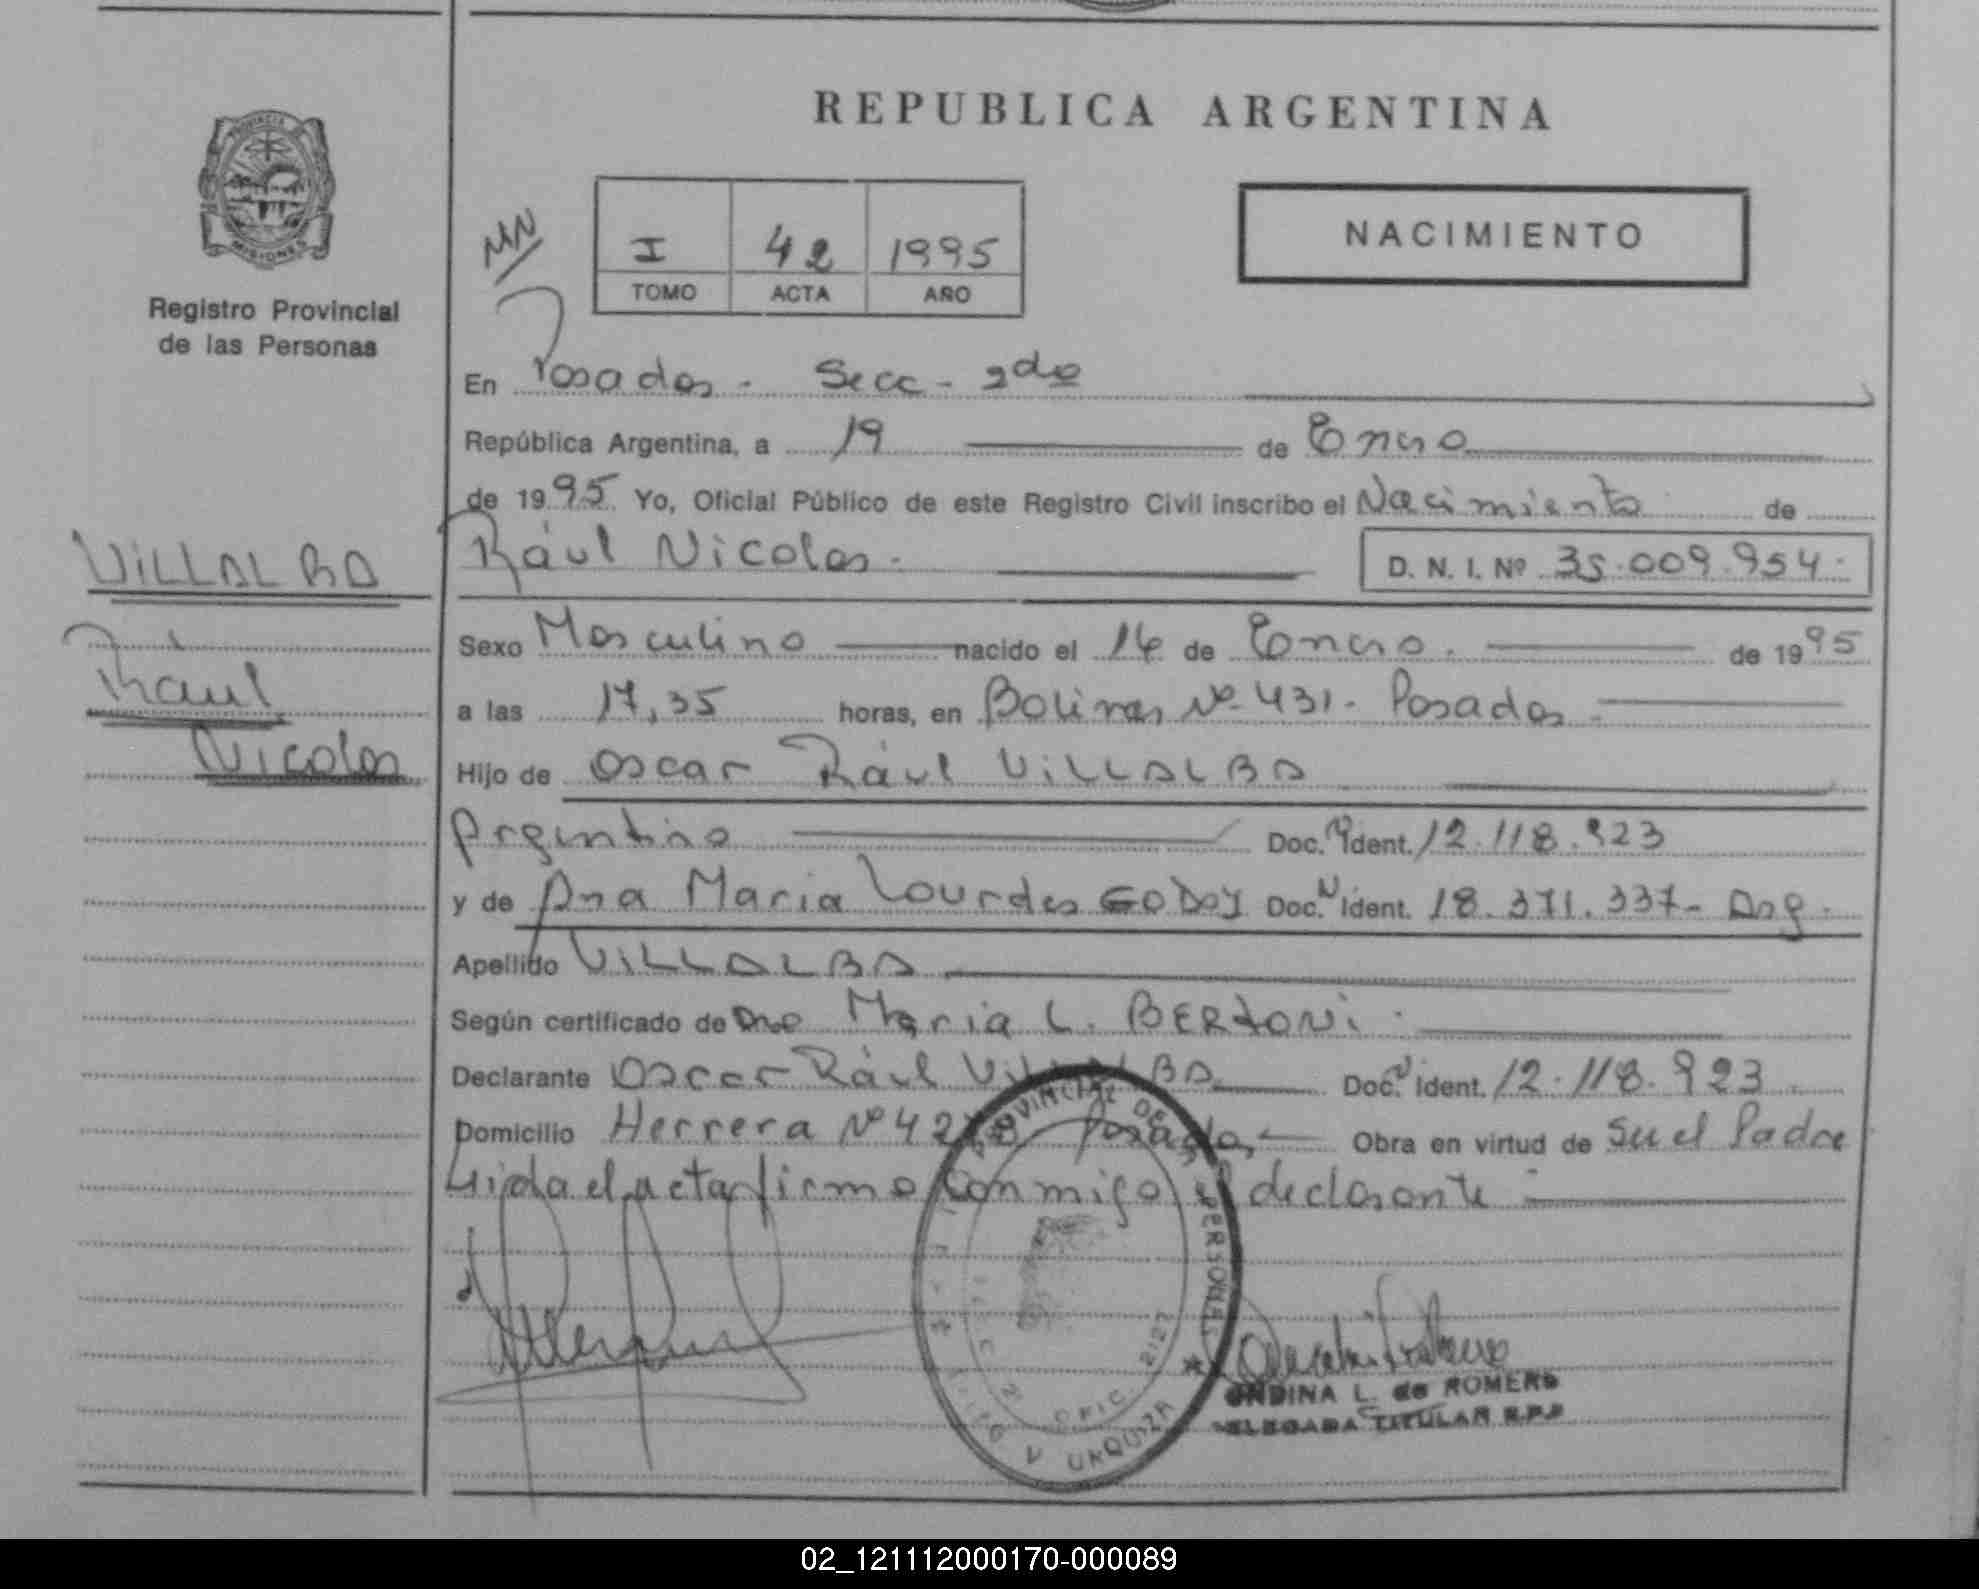 REPUBLICA ARGENTINA
PROVINCIA DE
MISIONES
Registro Provincial
de las Personas
NACIMIENTO
I 42 1995
TOMO ACTA AÑO
En Posadas - Secc - 2da
República Argentina, a 19 de Enero
de 1995 Yo, Oficial Público de este Registro Civil inscribo el Nacimiento de
Rául Nicolas. D. N. I. Nº 35.009.954.
VILLALBA
Rául
Nicolas
Sexo Masculino nacido el 14 de Enero. de 1995
a las 17,35 horas, en Bolivar Nº 431. Posadas
Hijo de Oscar Rául VILLALBA
Argentino Doc. Ident. 12.118.923
y de Ana Maria Lourdes GODOY Doc. Ident. 18.371.337- Arg.
Apellido VILLALBA
Según certificado de Dra Maria L. BERTONI.
Declarante Oscar Rául VILLALBA Doc. Ident. 12.118.923
Domicilio Herrera Nº Posadas Obra en virtud de Su el Padre
Leida el acta firma conmigo el declarante
PROVINCIAL DE PERSONAS
OFIC. 2127
URQUIZA
ONDINA L. de ROMERO
DELEGADA TITULAR R.P.P
02_121112000170-000089